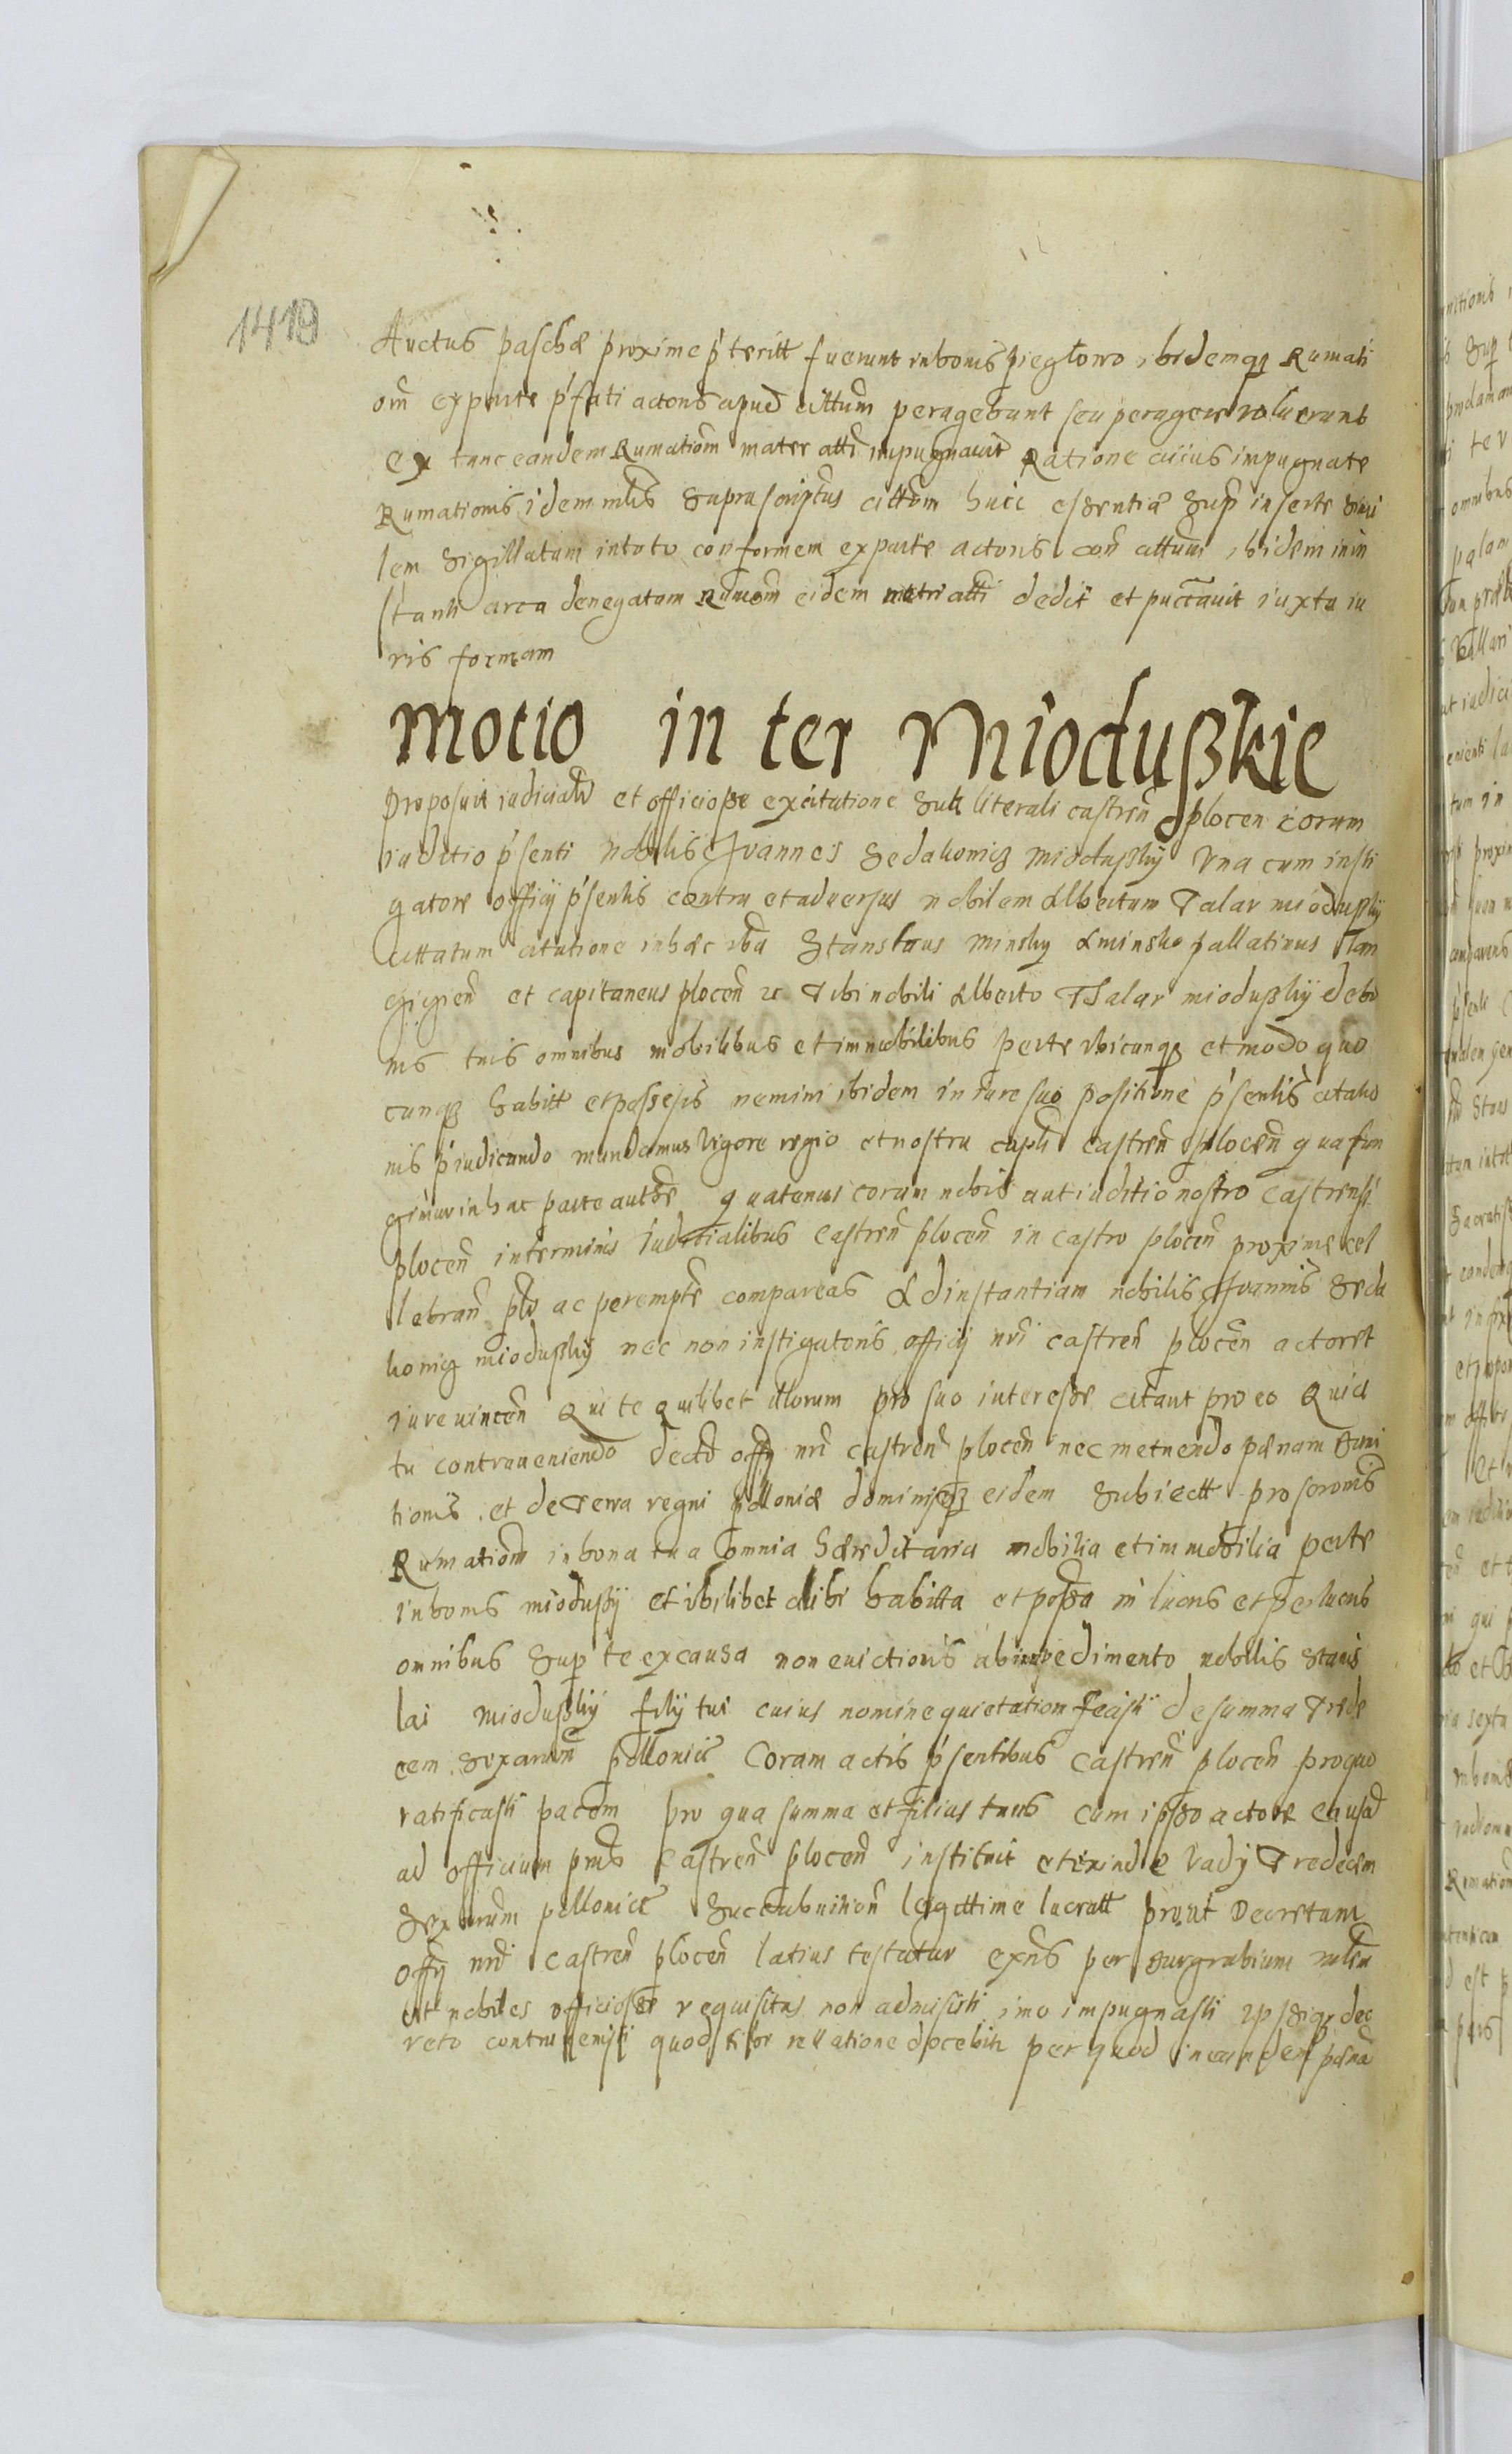 1419
Auctus paschæ proxime pteritt fuerunt in bonis pieglowo ibidemqz Rumati
om ex parte pfati actoris apud cittum peragebant seu peragere voluerunt
ex tunc eandem Rumatiom mater atti impugnauit Ratione cuius impugnate
Rumationis idem mlis Supra scriptus cittom huic essentiæ Sup inserte Simi
lem Sigillatam in toto conformem ex parte actoris con attum ibidem in in
stanti arca denegatam Rumom eidem matri atti dedit et punctauit iuxta iu
ris formam
Motio in ter Mioduskie
Proposuit iudicialr et officiose ex citatione Sub literali castren plocen coram
iuditio psenti Nobilis Joannes Sedakonicz miodusky Vna cum insti
gatore officij psentis contra et aduersus nobilem Albertum Talar miodusky
cittatum citatione in hæc vba Stanslaus minsky A minsko pallatinus Lan
cicien et capitaneus plocen zc Tibi nobili Alberto Talar miodusky de bo
nis tuis omnibus mobilibus et immobilibus perte vbicunqz et modo quo
cunqz habitt et possesis nemini ibidem in iure suo positione psentis citatio
nis piudicando mandamus Vigore regio et nostra capli castren plocen qua fun
gimur in hac parte authte quatenus coram nobis aut iuditio nostro castrensi
plocen in terminis Juditialibus castren plocen in castro plocen proxime cel
lebran plr ac perempte compareas Ad instantiam nobilis Joannis Seda
konicz miodusky nec non instigatoris officij nri castren plocen actoret
iure vincen Qui te quilibet illorum pro suo interesse citant pro eo Quia
tu contraueniendo decto offy nri castren plocen nec metuendo pænam bani
tionis et de Terra regni polloniæ dominijsqz eidem Subiectt proscronis
Rumatiom in bona tua omnia hæreditaria mobilia et immobilia perte
in bonis miodusy et vbilibet alibi habitta et possa in lucris et perlucris
omnibus Sup te ex causa non euictionis ab impedimento nobilis Stanis
lai miodusky filij tui cuius nomine quietation fecisti de summa Trede
cem Sexarum pollonic Coram actis psentibus castren plocen pro quo
ratificasti pacem pro qua summa et filius tuus cum ipso actore causad
ad officium pns castren plocen instituit et exinde Vady Tredecem
Sexarum pollonice Succubuition legittime lucratt prout Decretum
offy nri castren plocen latius testatur exns per burgrabium mlem
et nobiles officiose requisitus non admisisti imo impugnasti ipsiqz dec
reto contrauenisti quod tibi rellatione docebitr per quod in eandem pæna